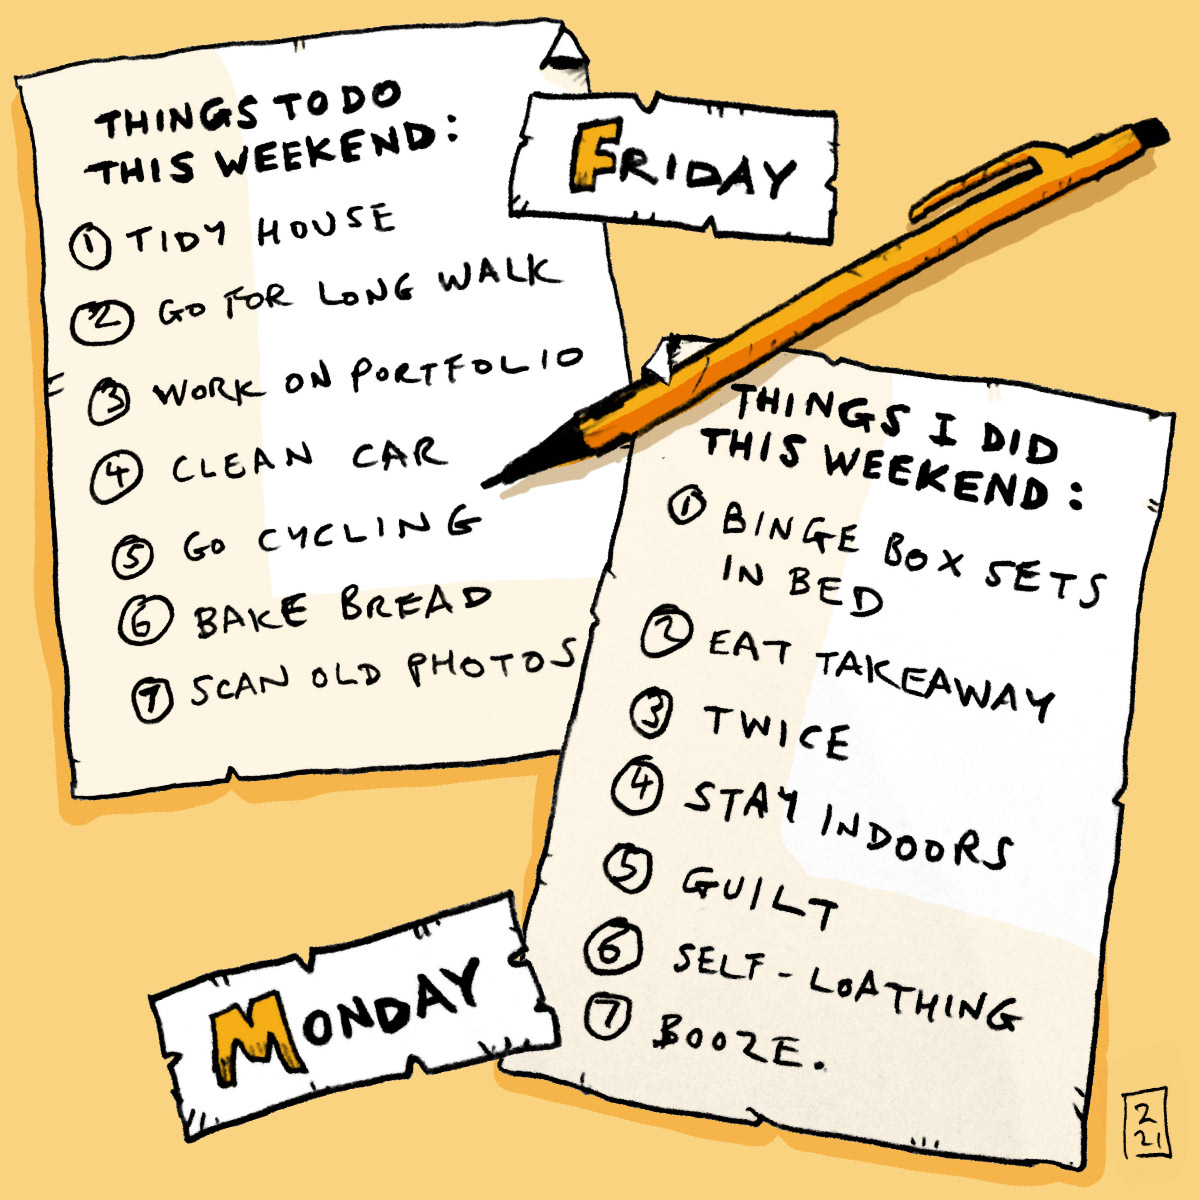 THINGS TO DO
THIS WEEKEND:
① TIDY HOUSE
② GO FOR LONG WALK
③ WORK ON PORTFOLIO
④ CLEAN CAR
⑤ GO CYCLING
⑥ BAKE BREAD
⑦ SCAN OLD PHOTOS
FRIDAY
THINGS I DID
THIS WEEKEND:
① BINGE BOX SETS
IN BED
② EAT TAKEAWAY
③ TWICE
④ STAY INDOORS
⑤ GUILT
⑥ SELF-LOATHING
⑦ BOOZE.
MONDAY
2
21